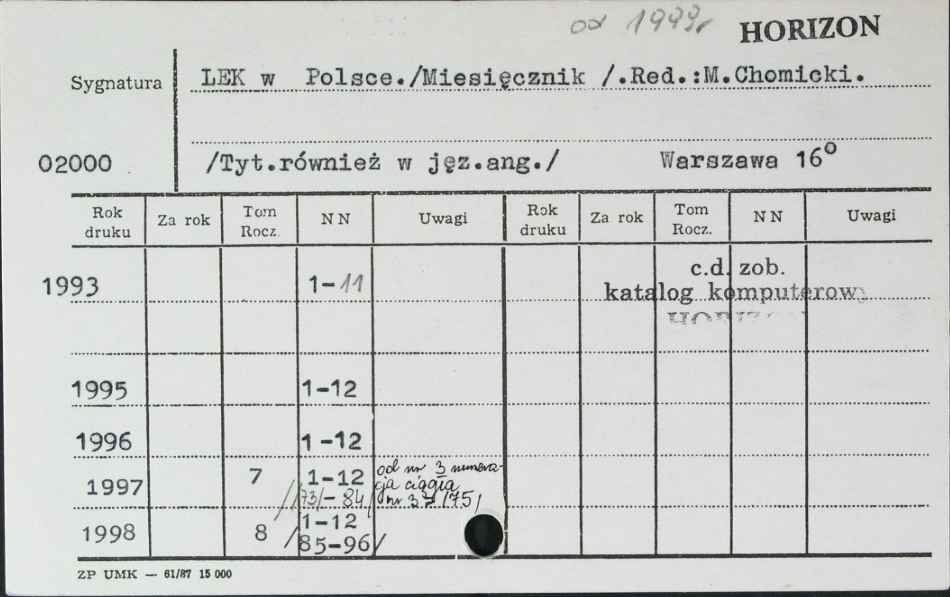 od 1999r HORIZON
Sygnatura LEK w Polsce./Miesięcznik /.Red.:M.Chomicki.
02000 /Tyt.również w jęz.ang./ Warszawa 16°
Rok druku Za rok Tom Rocz. NN Uwagi Rok druku Za rok Tom Rocz. NN Uwagi
1993 1-11 c.d. zob.
katalog komputerowy
HORIZON
1995 1-12
1996 1-12
1997 7 1-12 od nr 3 numera-
cja ciągła
//73/-84/ nr 3=/75/
1998 8 1-12
/85-96/
ZP UMK — 61/87 15 000